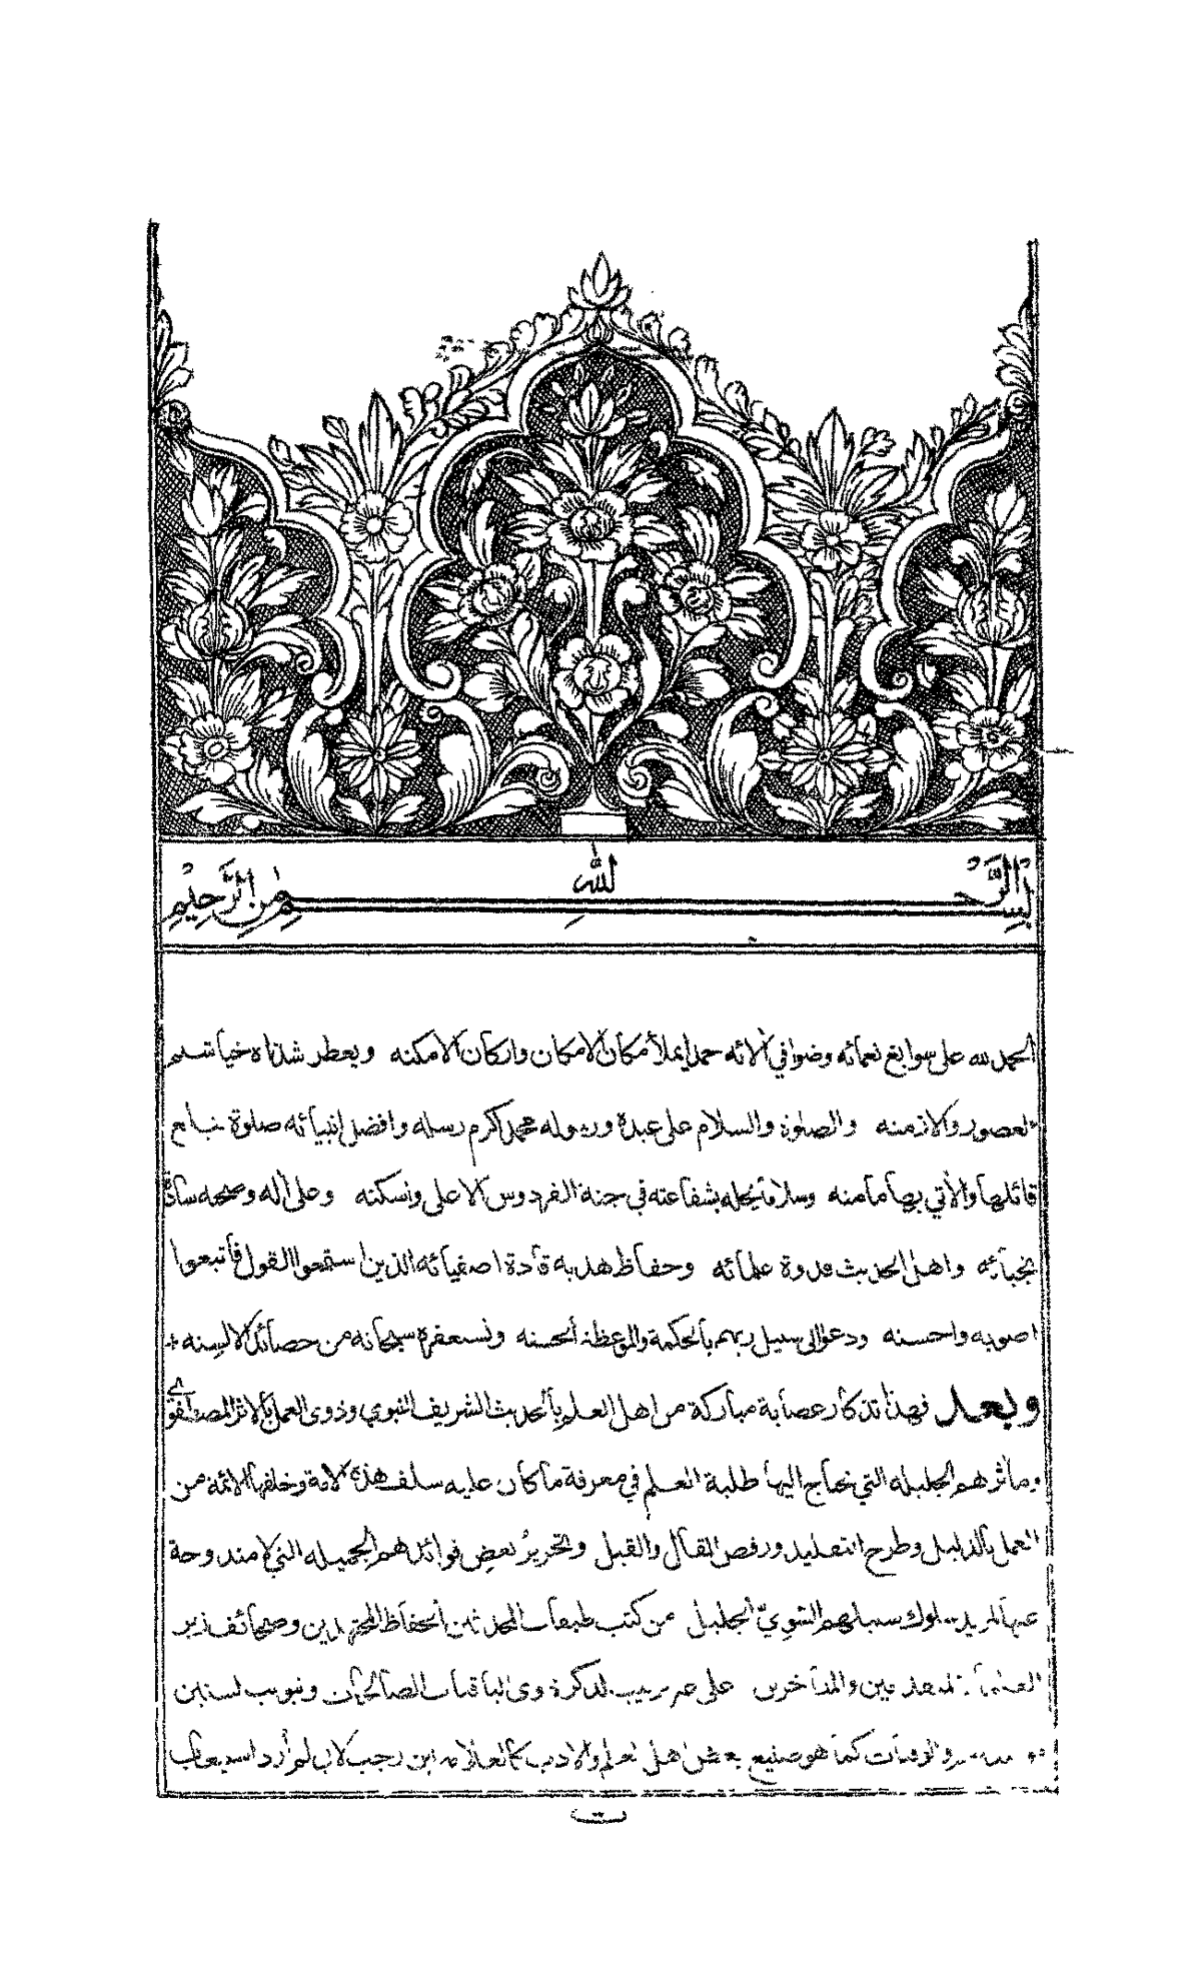 بِسْمِ اللهِ الرَّحْمٰنِ الرَّحِيْمِ
الحمد لله على سوابغ نعمائه وضوافي آلائه حمدا يملأ مكان الامكان واركان الامكنه ويعطر شذاه خياشيم
العصور والازمنه والصلوة والسلام على عبده ورسوله محمد اكرم رسله وافضل انبيائه صلوة
قائلها والآتي بها مأمنه وسلاما يحله بشفاعته في جنة الفردوس الاعلى وتسكنه وعلى آله وصحبه سادة
نجبائه واهل الحديث قدوة علمائه وحفاظ هديه قادة اصفيائه الذين استمعوا القول فاتبعوا
اصوبه واحسنه ودعوا الى سبيل ربهم بالحكمة والموعظة الحسنه ونستغفره سبحانه من حصائد الالسنه
وبعد فهذا تذكار عصابة مباركة من اهل العلم بالحديث الشريف النبوي وذوى العمل بالاثر المصطفوي
ومآثرهم الجليله التي يحتاج اليها طلبة العلم في معرفة ما كان عليه سلف هذه الامة وخلفها الائمة من
العمل بالدليل وطرح التقليد ورفض القال والقيل وتحرير بعض فوائدهم الجميله التي لا مندوحة
عنها لمريد سلوك سبيلهم السوي الجليل من كتب طبقات المحدثين الحفاظ المجتهدين وصحائف زبر
العلماء المتقدمين والمتأخرين على غير ترتيب لذكر ذوى الباقيات الصالحات وتبويب لسنين
والوفيات كما هو صنيع بعض اهل العلم والادب كالعلامه ابن رجب لاني لم أرد استيعاب
ت